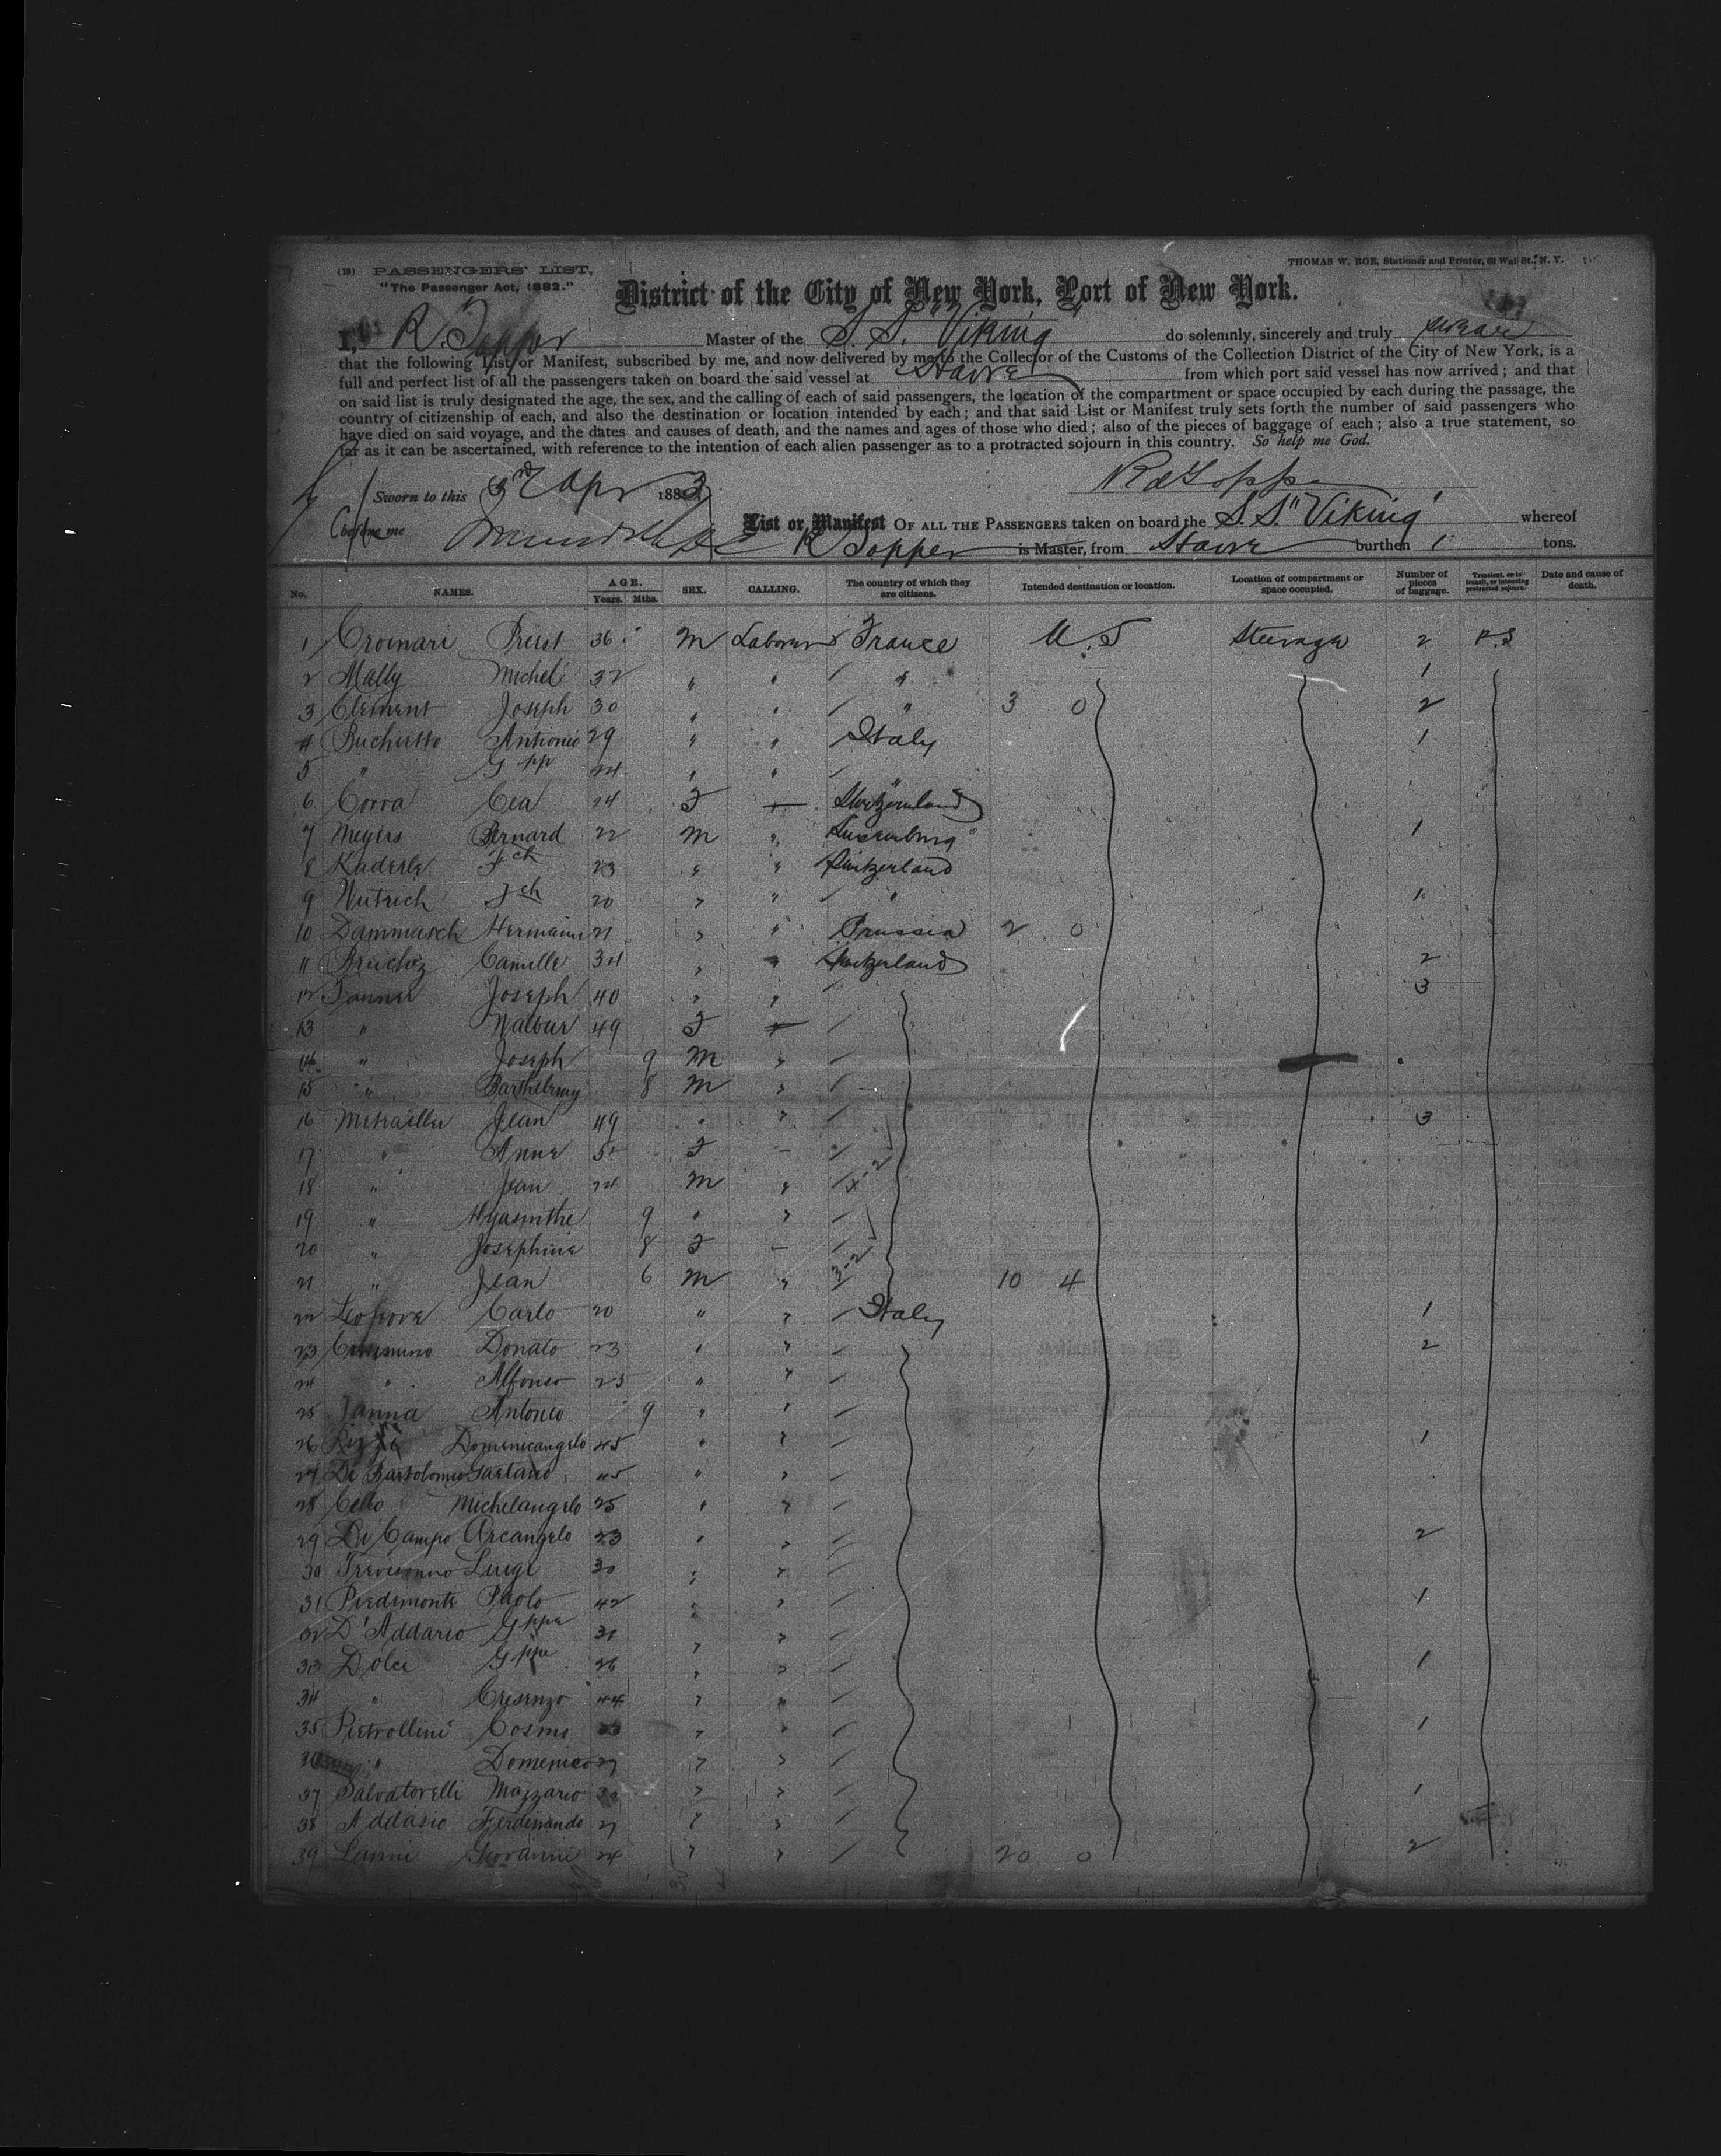 (18) PASSENGERS' LIST, THOMAS W. ROE, Stationer and Printer, 63 Wall St., N. Y.
"The Passenger Act, 1882."
District of the City of New York, Port of New York.
I, R Topper Master of the S. S. "Viking" do solemnly, sincerely and truly swear
that the following List or Manifest, subscribed by me, and now delivered by me to the Collector of the Customs of the Collection District of the City of New York, is a
full and perfect list of all the passengers taken on board the said vessel at Havre from which port said vessel has now arrived ; and that
on said list is truly designated the age, the sex, and the calling of each of said passengers, the location of the compartment or space occupied by each during the passage, the
country of citizenship of each, and also the destination or location intended by each ; and that said List or Manifest truly sets forth the number of said passengers who
have died on said voyage, and the dates and causes of death, and the names and ages of those who died ; also of the pieces of baggage of each ; also a true statement, so
far as it can be ascertained, with reference to the intention of each alien passenger as to a protracted sojourn in this country. So help me God.
Sworn to this 3rd Apr 1883
before me List or Manifest OF ALL THE PASSENGERS taken on board the S. S. "Viking" whereof
R Topper is Master, from Havre burthen tons.
No. NAMES. AGE. Years. Mths. SEX. CALLING. The country of which they are citizens. Intended destination or location. Location of compartment or space occupied. Number of pieces of baggage. Transient, or in transit, or intending protracted sojourn. Date and cause of death.
1 Croinari 36 M Laborer France U.S Steerage 2 P.S
2 Mally Michel 32 " " / " 1
3 Clement Joseph 30 " " / " 3 0 2
4 Antonio 29 " " / Italy 1
5 " Gpp 24 " " / "
6 Corra Cea 24 F — Switzerland
7 Meyers Bernard 22 M " Luxemburg 1
8 Kaderle Fch 23 " " Switzerland
9 Wutrich Jch 20 " " / " 1
10 Dammasch Hermann 21 " " Prussia 2 0
11 Bruchez Camille 34 " " Switzerland 2
12 Tanner Joseph 40 " " / 3
13 " Walbur 49 F — /
14 " Joseph 9 M " /
15 " Barthelemy 8 M " /
16 Metrailler Jean 49 " " / 3
17 " Anne 5 F — /
18 " Jean 24 M " /
19 " Hyasinthe 9 " " /
20 " Josephine 8 F — /
21 " Jean 6 M " / 10 4
22 Carlo 20 " " / Italy 1
23 Donato 23 " " / 2
24 " Alfonso 25 " " /
25 Janna Antonio 9 " " /
26 Rizzi Domenicangelo 45 " " / 1
27 De Bartolomeo Gaetano 45 " " /
28 Cello Michelangelo 25 " " /
29 Di Campo Arcangelo 23 " " / 2
30 Trevisonno Luigi 30 " " /
31 Piedimonte Paolo 42 " " / 1
32 D'Addario Gppe 31 " " /
33 Dolce Gppe 26 " " / 1
34 " Cresenzo 44 " " /
35 Pietrollini Cosmo " " / 1
36 " Domenico 27 " " /
37 Salvatorelli Mazzario " " / 1
38 Addasio Ferdinando 27 " " /
39 Lanni Giovanni 24 " " / 20 0 2